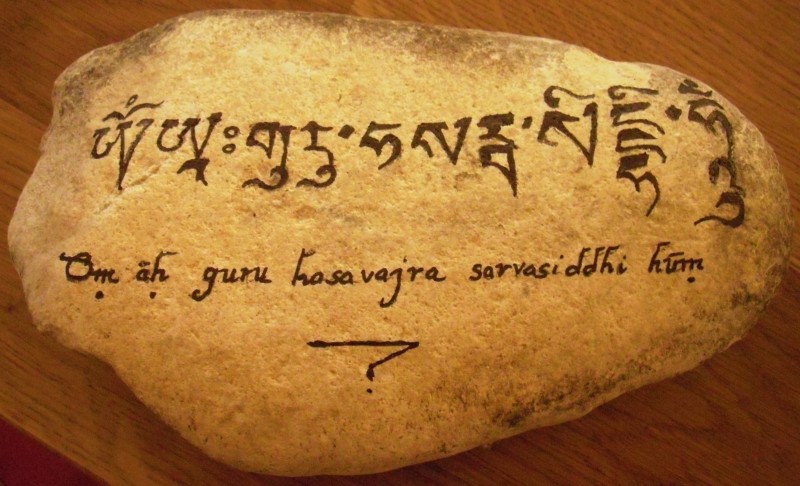 ཨོཾཨཱཿགུརུ་ཧསརྦ་སིདྡྷི་ཧཱུྃ
Oṃ āḥ guru hasavajra sarvasiddhi hūṃ